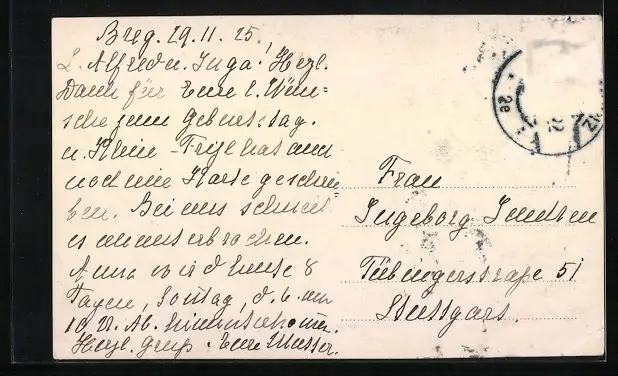 Breg. 29.11.25.
L. Alfred u. Inga! Herzl.
Dank für Eure l. Wün=
sche zum Geburtstag.
u. Klein-Fritzl hat auch
noch eine Karte geschrie=
ben. Bei uns schneit
es ununterbrochen.
Anna wird heute 8
Tagen, Sontag, d. 6. um
10 U. Ab.
Herzl. Gruß. Eure Mutter.
Frau
Ingeborg
Tübingerstraße 51
Stuttgart.